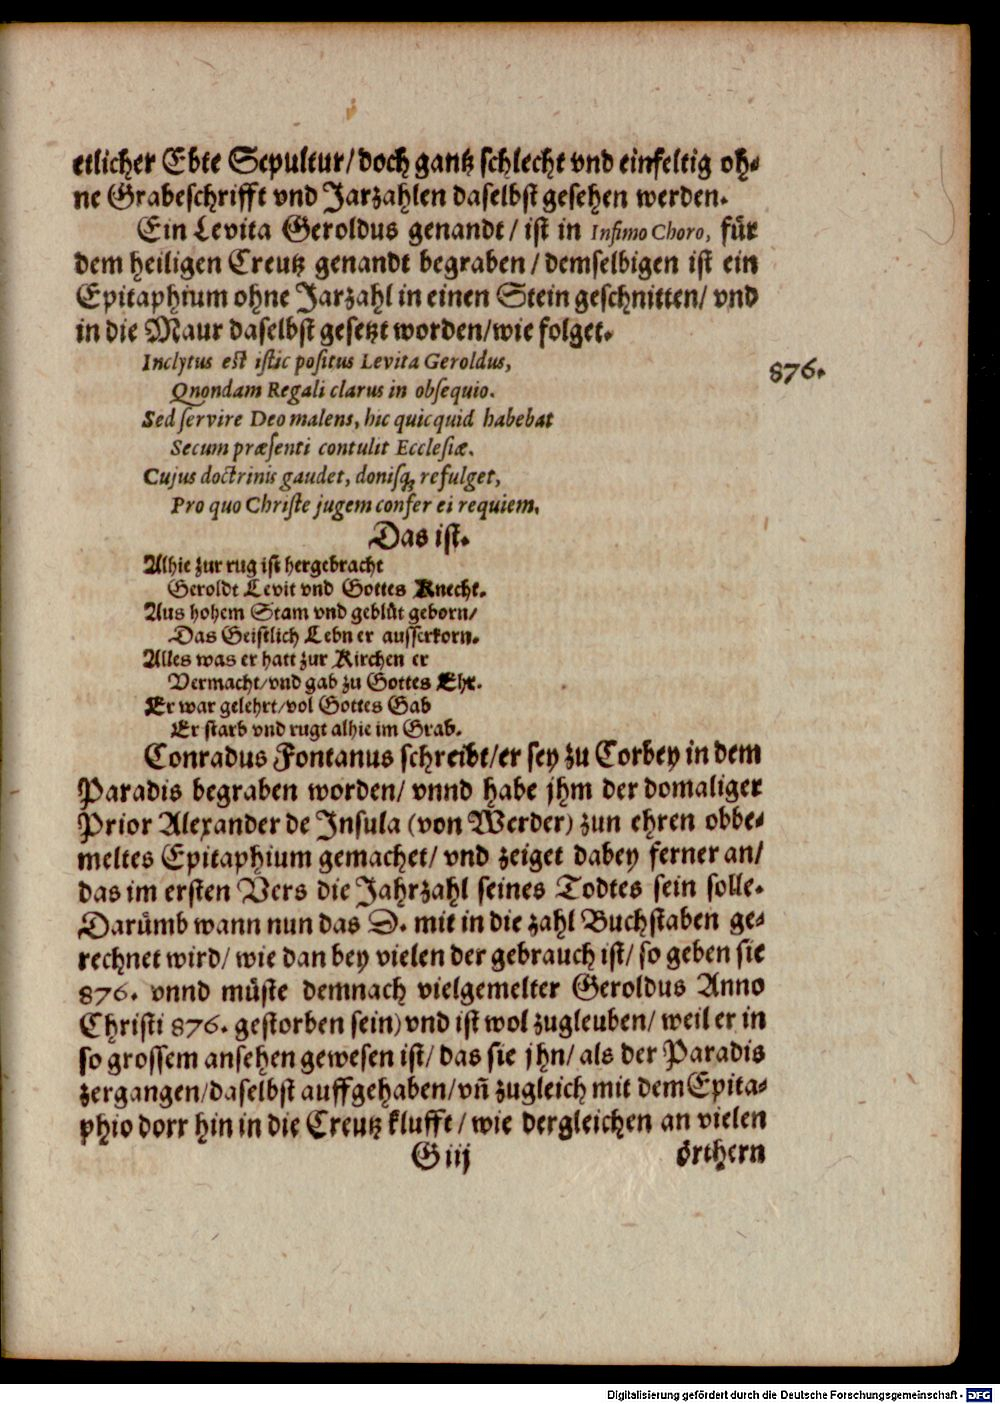 etlicher Ebte Sepultur/ doch gantz schlecht vnd einfeltig oh-
ne Grabeschrifft vnd Jarzahlen daselbst gesehen werden.
Ein Levita Geroldus genandt / ist in Infimo Choro, für
dem heiligen Creutz genandt begraben / demselbigen ist ein
Epitaphium ohne Jarzahl in einen Stein geschnitten/ vnd
in die Maur daselbst gesetzt worden/wie folget.
Inclytus est istic positus Levita Geroldus,
876.
Qnondam Regali clarus in obsequio.
Sed servire Deo malens, hic quicquid habebat
Secum præsenti contulit Ecclesiæ.
Cujus doctrinis gaudet, donisq; refulget,
Pro quo Christe jugem confer ei requiem.
Das ist.
Alhie zur rug ist hergebracht
Geroldt Levit vnd Gottes Knecht.
Aus hohem Stam vnd geblüt geborn/
Das Geistlich Lebn er ausserkorn.
Alles was er hatt zur Kirchen er
Vermacht/vnd gab zu Gottes Ehr.
Er war gelehrt/vol Gottes Gab
Er starb vnd rugt alhie im Grab.
Conradus Fontanus schreibt/er sey zu Corbey in dem
Paradis begraben worden/ vnnd habe jhm der domaliger
Prior Alexander de Insula (von Werder) zun ehren obbe-
meltes Epitaphium gemachet/ vnd zeiget dabey ferner an/
das im ersten Vers die Jahrzahl seines Todtes sein solle.
Darümb wann nun das D. mit in die zahl Buchstaben ge-
rechnet wird/ wie dan bey vielen der gebrauch ist/ so geben sie
876. vnnd müste demnach vielgemelter Geroldus Anno
Christi 876. gestorben sein) vnd ist wol zugleuben/ weil er in
so grossem ansehen gewesen ist/ das sie jhn/ als der Paradis
zergangen/daselbst auffgehaben/vñ zugleich mit dem Epita-
phio dorr hin in die Creutz klufft / wie dergleichen an vielen
G iij
örthern
Digitalisierung gefördert durch die Deutsche Forschungsgemeinschaft - DFG